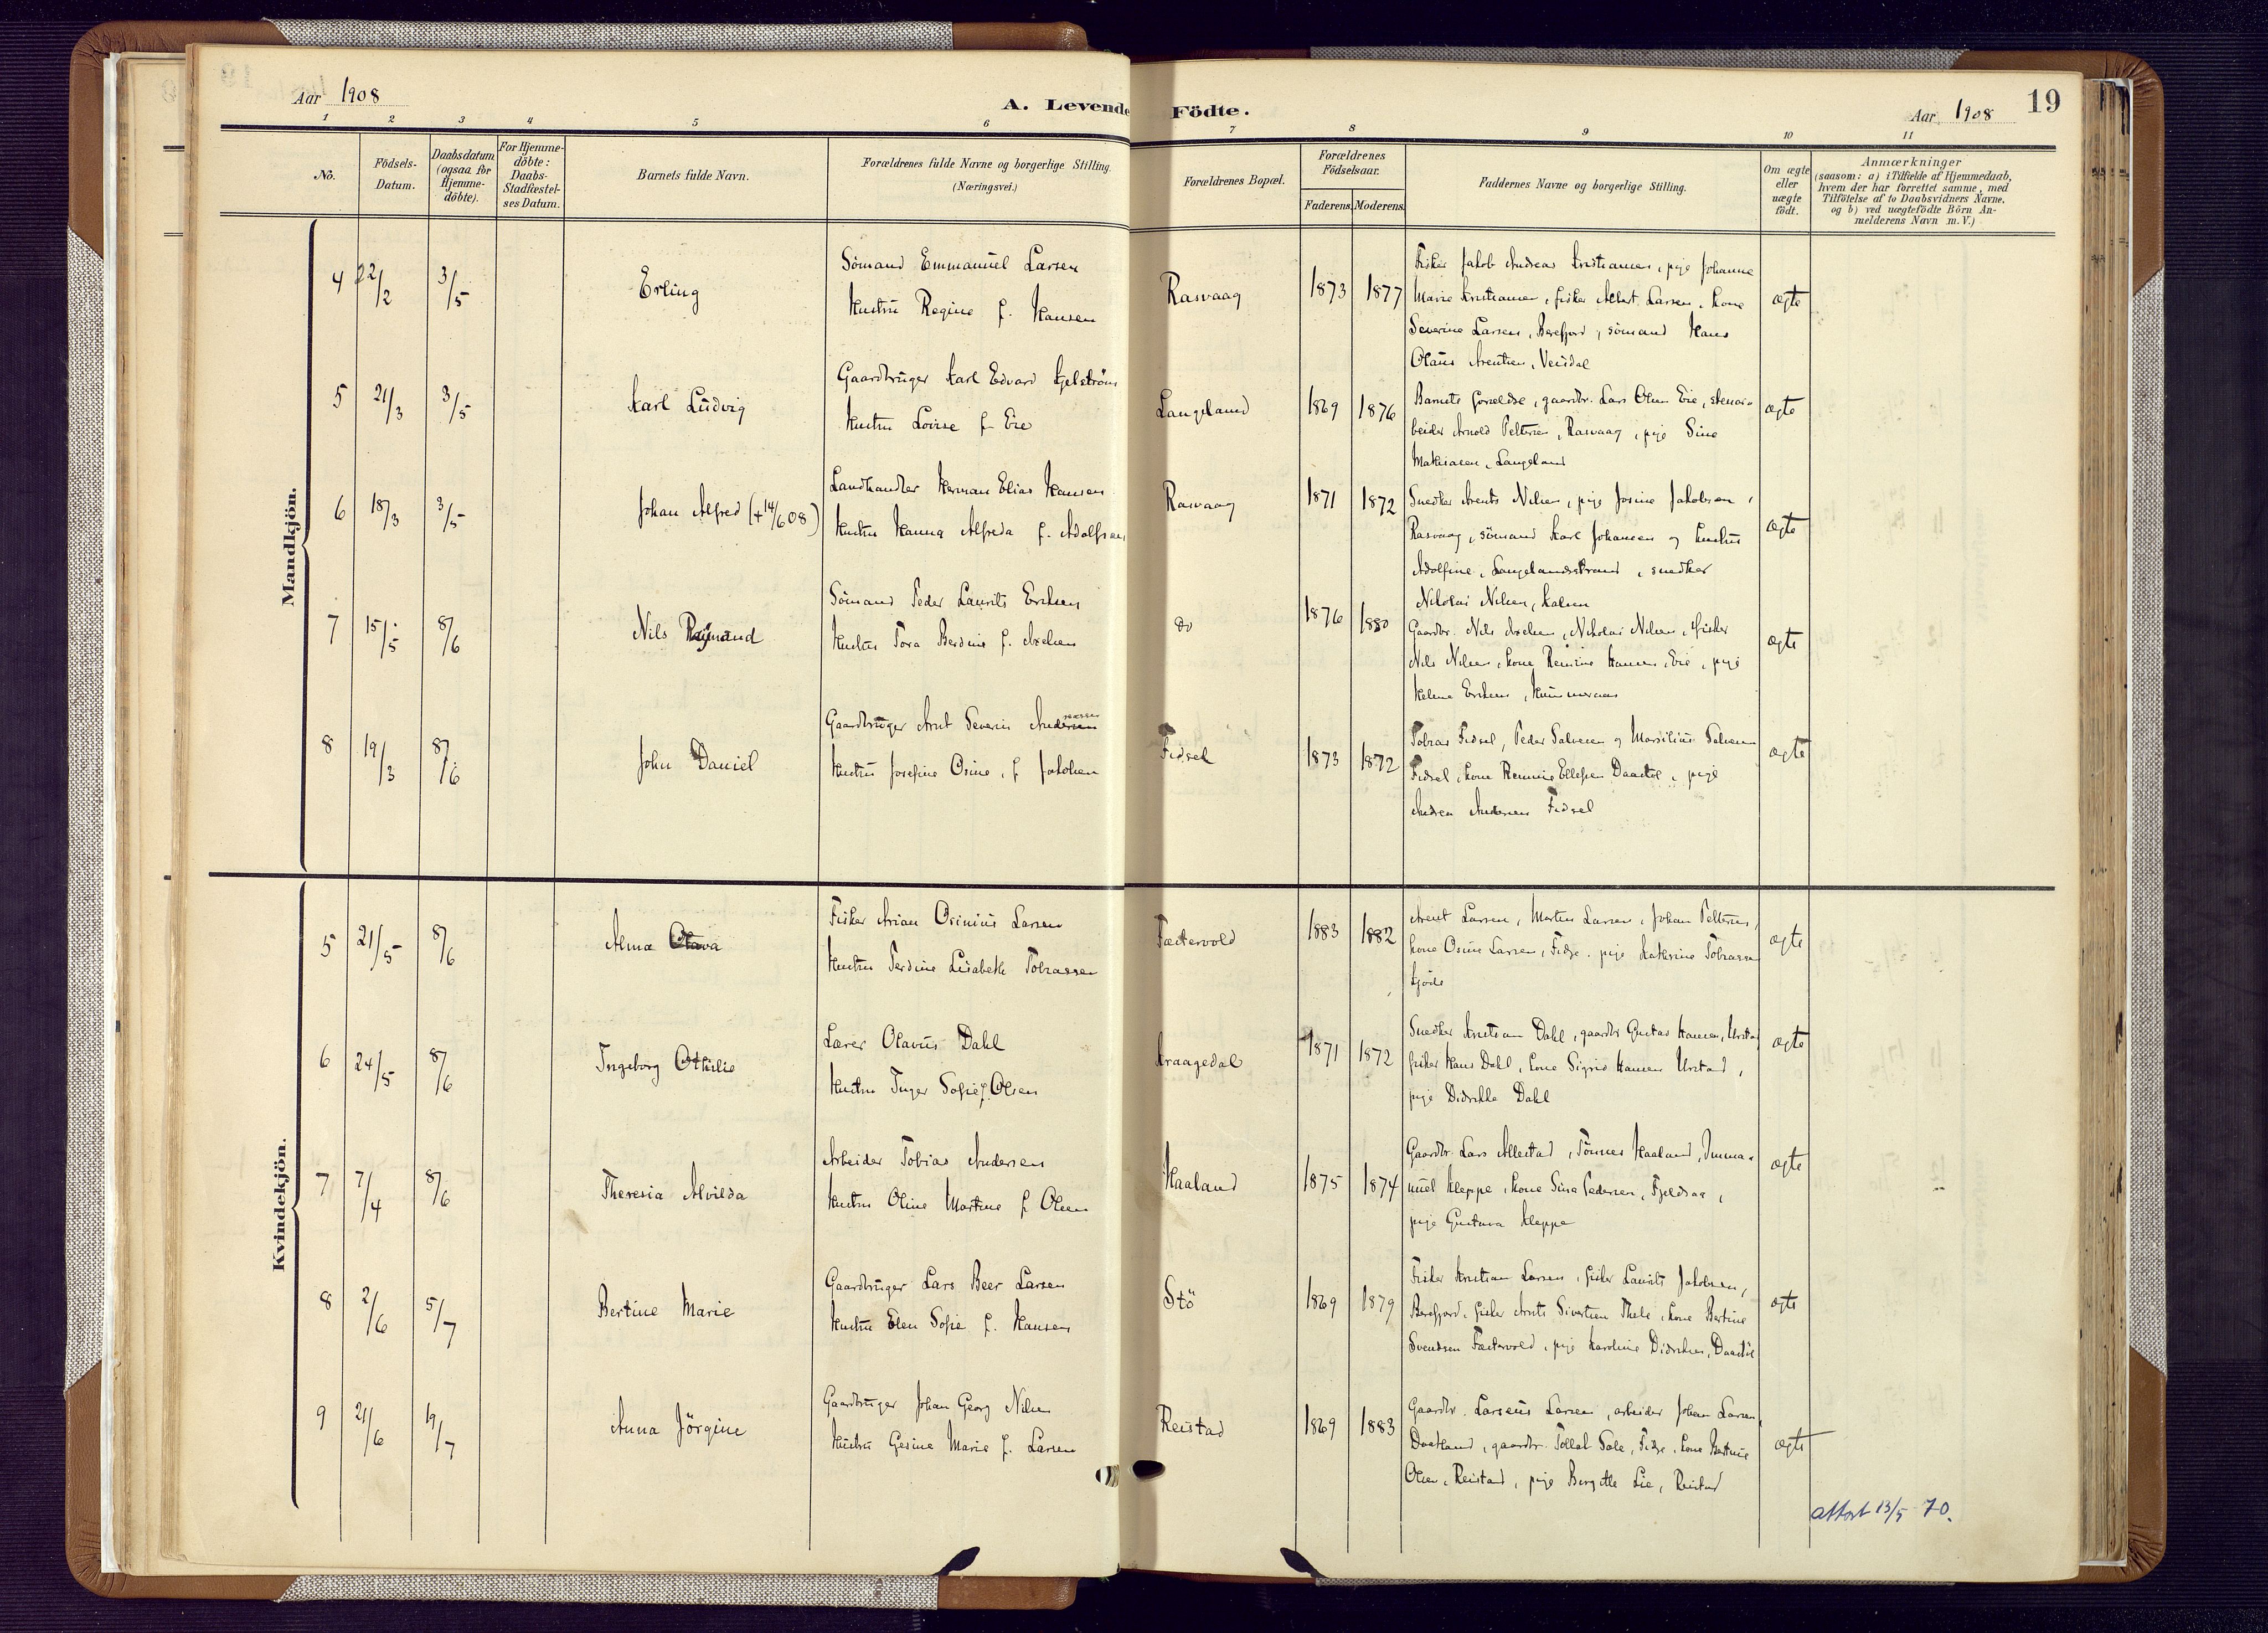 Aar 1908
A. Levende Födte.
Aar 1908
19
1 2 3 4 5 6 7 8 9 10 11
No.
Födsels-
Datum.
Daabsdatum
(ogsaa for
Hjemme-
döbte).
For Hjemme-
döbte:
Daabs-
Stadfæstel-
ses Datum.
Barnets fulde Navn.
Forældrenes fulde Navne og borgerlige Stilling.
(Næringsvei.)
Forældrenes Bopæl.
Forældrenes
Födselsaar.
Faderens. Moderens.
Faddernes Navne og borgerlige Stilling.
Om ægte
eller
uægte
födt.
Anmærkninger
(saasom: a) i Tilfælde af Hjemmedaab,
hvem der har forrettet samme, med
Tilföielse af to Daabsvidners Navne,
og b) ved uægtefödte Börn An-
melderens Navn m. V.)
Mandkjön.
4 22/2 3/5 Erling
Sömand Emmanuel Larsen
Hustru Regine f. Hansen
Rasvaag 1873 1877
Fisker Jakob Andreas Kristiansen, pige Johanne
Marie Kristiansen, fisker Albert Larsen, kone
Severine Larsen, Berefjord, sömand Hans
Olaus Arentsen, Veisdal
ægte
5 21/3 3/5 Karl Ludvig
Gaardbruger Karl Edvard Kjelström
Hustru Lovise f. Eie
Langeland 1869 1876
Barnets forældre, gaardbr. Lars Olsen Eie, stenar-
beider Arnold Pettersen, Rasvaag, pige Sine
Mathiasen, Langeland
ægte
6 18/3 3/5 Johan Alfred (+14/6 08)
Landhandler Herman Elias Hansen
Hustru Hanna Alfreda f. Adolfsen
Rasvaag 1871 1872
Snedker Arents Nilsen, pige Josine Jakobsen,
Rasvaag, sömand Karl Johansen og hustru
Adolfine, Langelandsstrand, snedker
Nikolai Nilsen,
ægte
7 15/5 8/6 Nils Rejnand
Sömand Peder Laurits Eriksen
Hustru Tora Berdine f. Axelsen
do 1876 1880
Gaardbr. Nils Axelsen, Nikolai Nilsen, fisker
Nils Nilsen, kone Reinine Hansen, Eie, pige
Helene Eriksen,
ægte
8 19/3 8/6 John Daniel
Gaardbruger Arnt Severin Andersen
Hustru Josefine Osine, f. Jakobsen
Fidsel 1873 1872
Tobias Fidsel, Peder Salvesen og Marsilius Salvesen
Fidsel, kone Remine Ellefsen Daastöl, pige
Andrea Andersen Fidsel
ægte
Kvindekjön.
5 21/5 8/6 Alma Olava
Fisker Arian Osinius Larsen
Hustru Perdine Lisabeth Tobiassen
Fæstervold 1883 1882
Arent Larsen, Martin Larsen, Johan Pettersen,
kone Osine Larsen, Fidje, pige Kathrine Tobiassen
ægte
6 24/5 8/6 Ingeborg Othilie
Lærer Olavus Dahl
Hustru Inger Sofie f. Olsen
Kraagedal 1871 1872
Snedker Kristian Dahl, gaardbr Gustav Hansen, Urstad
fisker Hans Dahl, kone Sigrid Hansen Urstad,
pige Didrikke Dahl
ægte
7 7/4 8/6 Theresia Alvilda
Arbeider Tobias Andersen
Hustru Oline Martine f. Olsen
Haaland 1875 1874
Gaardbr. Lars Allestad, Tönnes Haaland, Imma-
nuel Kleppe, kone Sina Pedersen, Fjeldsaa,
pige Gustava Kleppe
ægte
8 2/6 5/7 Bertine Marie
Gaardbruger Lars Beer Larsen
Hustru Elen Sofie f. Hansen
Stö 1869 1879
Fisker Kristian Larsen, fisker Laurits Jakobsen,
Berefjord, fisker Arnts Sivertsen Thele, kone Bertine
Svendsen Fæstervold, pige Karoline Didriksen, Daastöl
ægte
9 21/6 19/7 Anna Jörgine
Gaardbruger Johan Georg Nilsen
Hustru Gesine Marie f. Larsen
Reistad 1869 1883
Gaardbr. Larseus Larsen, arbeider Johan Larsen,
Daatland, gaardbr. Tollak Sole, Fidje, kone Bertine
Olsen, Reistad, pige Bergitte Lie, Reistad
ægte
attest 13/5 70.